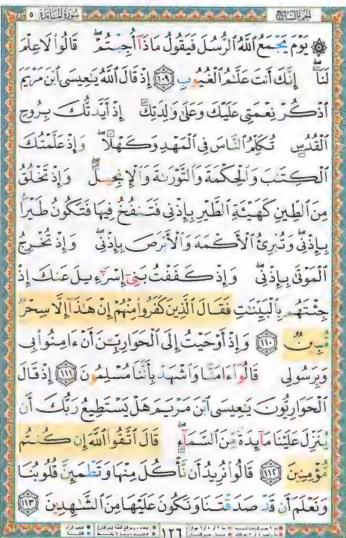 الجزء السابع سورة المائدة ٥
۞ يَوْمَ يَجْمَعُ ٱللَّهُ ٱلرُّسُلَ فَيَقُولُ مَاذَآ أُجِبْتُمْ ۖ قَالُوا۟ لَا عِلْمَ
لَنَآ ۖ إِنَّكَ أَنتَ عَلَّٰمُ ٱلْغُيُوبِ ١٠٩ إِذْ قَالَ ٱللَّهُ يَٰعِيسَى ٱبْنَ مَرْيَمَ
ٱذْكُرْ نِعْمَتِى عَلَيْكَ وَعَلَىٰ وَٰلِدَتِكَ إِذْ أَيَّدتُّكَ بِرُوحِ
ٱلْقُدُسِ تُكَلِّمُ ٱلنَّاسَ فِى ٱلْمَهْدِ وَكَهْلًا ۖ وَإِذْ عَلَّمْتُكَ
ٱلْكِتَٰبَ وَٱلْحِكْمَةَ وَٱلتَّوْرَىٰةَ وَٱلْإِنجِيلَ ۖ وَإِذْ تَخْلُقُ
مِنَ ٱلطِّينِ كَهَيْـَٔةِ ٱلطَّيْرِ بِإِذْنِى فَتَنفُخُ فِيهَا فَتَكُونُ طَيْرًۢا
بِإِذْنِى ۖ وَتُبْرِئُ ٱلْأَكْمَهَ وَٱلْأَبْرَصَ بِإِذْنِى ۖ وَإِذْ تُخْرِجُ
ٱلْمَوْتَىٰ بِإِذْنِى ۖ وَإِذْ كَفَفْتُ بَنِىٓ إِسْرَٰٓءِيلَ عَنكَ إِذْ
جِئْتَهُم بِٱلْبَيِّنَٰتِ فَقَالَ ٱلَّذِينَ كَفَرُوا۟ مِنْهُمْ إِنْ هَٰذَآ إِلَّا سِحْرٌ
مُّبِينٌ ١١٠ وَإِذْ أَوْحَيْتُ إِلَى ٱلْحَوَارِيِّـۧنَ أَنْ ءَامِنُوا۟ بِى
وَبِرَسُولِى قَالُوٓا۟ ءَامَنَّا وَٱشْهَدْ بِأَنَّنَا مُسْلِمُونَ ١١١ إِذْ قَالَ
ٱلْحَوَارِيُّونَ يَٰعِيسَى ٱبْنَ مَرْيَمَ هَلْ يَسْتَطِيعُ رَبُّكَ أَن
يُنَزِّلَ عَلَيْنَا مَآئِدَةً مِّنَ ٱلسَّمَآءِ ۖ قَالَ ٱتَّقُوا۟ ٱللَّهَ إِن كُنتُم
مُّؤْمِنِينَ ١١٢ قَالُوا۟ نُرِيدُ أَن نَّأْكُلَ مِنْهَا وَتَطْمَئِنَّ قُلُوبُنَا
وَنَعْلَمَ أَن قَدْ صَدَقْتَنَا وَنَكُونَ عَلَيْهَا مِنَ ٱلشَّٰهِدِينَ ١١٣
١٢٦